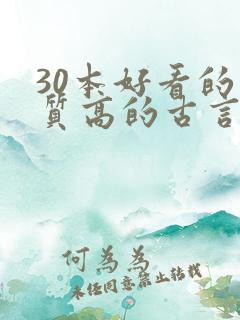 30本好看的
质高的古言
何為為
未经同意禁止转载